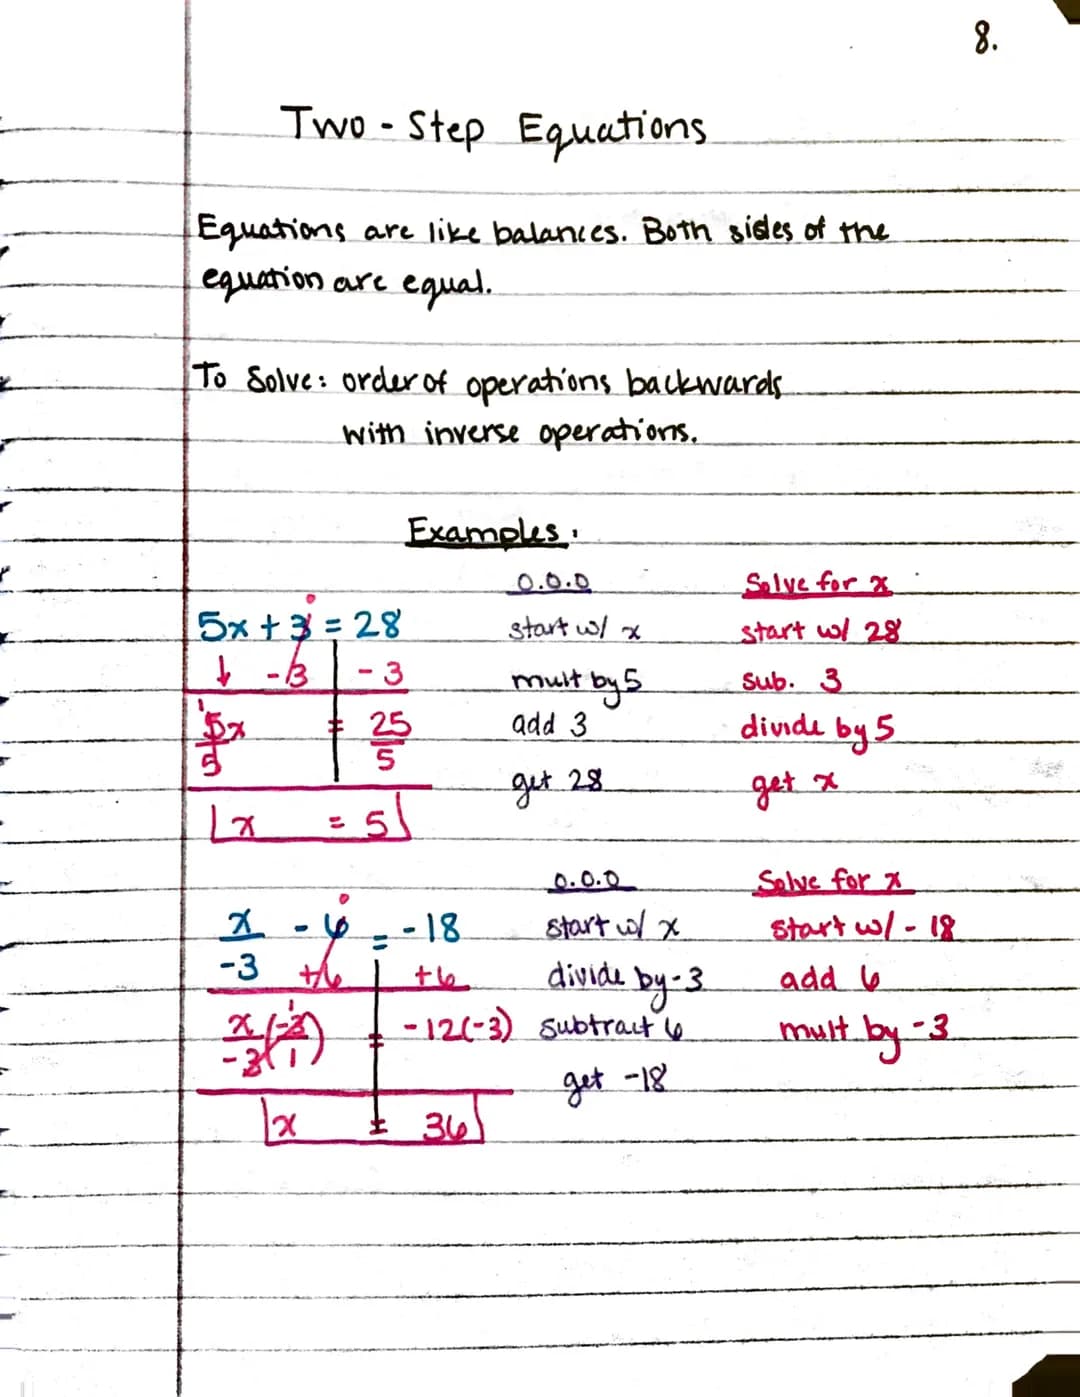 8.
Two-Step Equations
Equations are like balances. Both sides of the
equation are equal.
To Solve: order of operations backwards
with inverse operations.
Examples:
O.O.O Solve for x
5x + 3 = 28 start w/ x start w/ 28
↓ -3 | - 3 mult by 5 sub. 3
5x/5 = 25/5 add 3 divide by 5
get 28 get x
x = 5
O.O.O Solve for x
x/-3 - 6 = -18 start w/ x start w/ -18
+6 | +6 divide by -3 add 6
x/-3 (-3/1) = -12(-3) subtract 6 mult by -3
get -18
x = 36